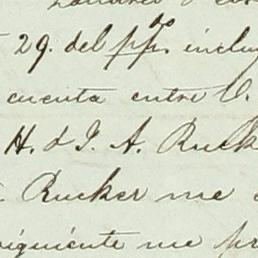 29. del ppdo. inclu
cuenta entre V.
H. & J. A. Ruck
Rucker me
siguiente me pr